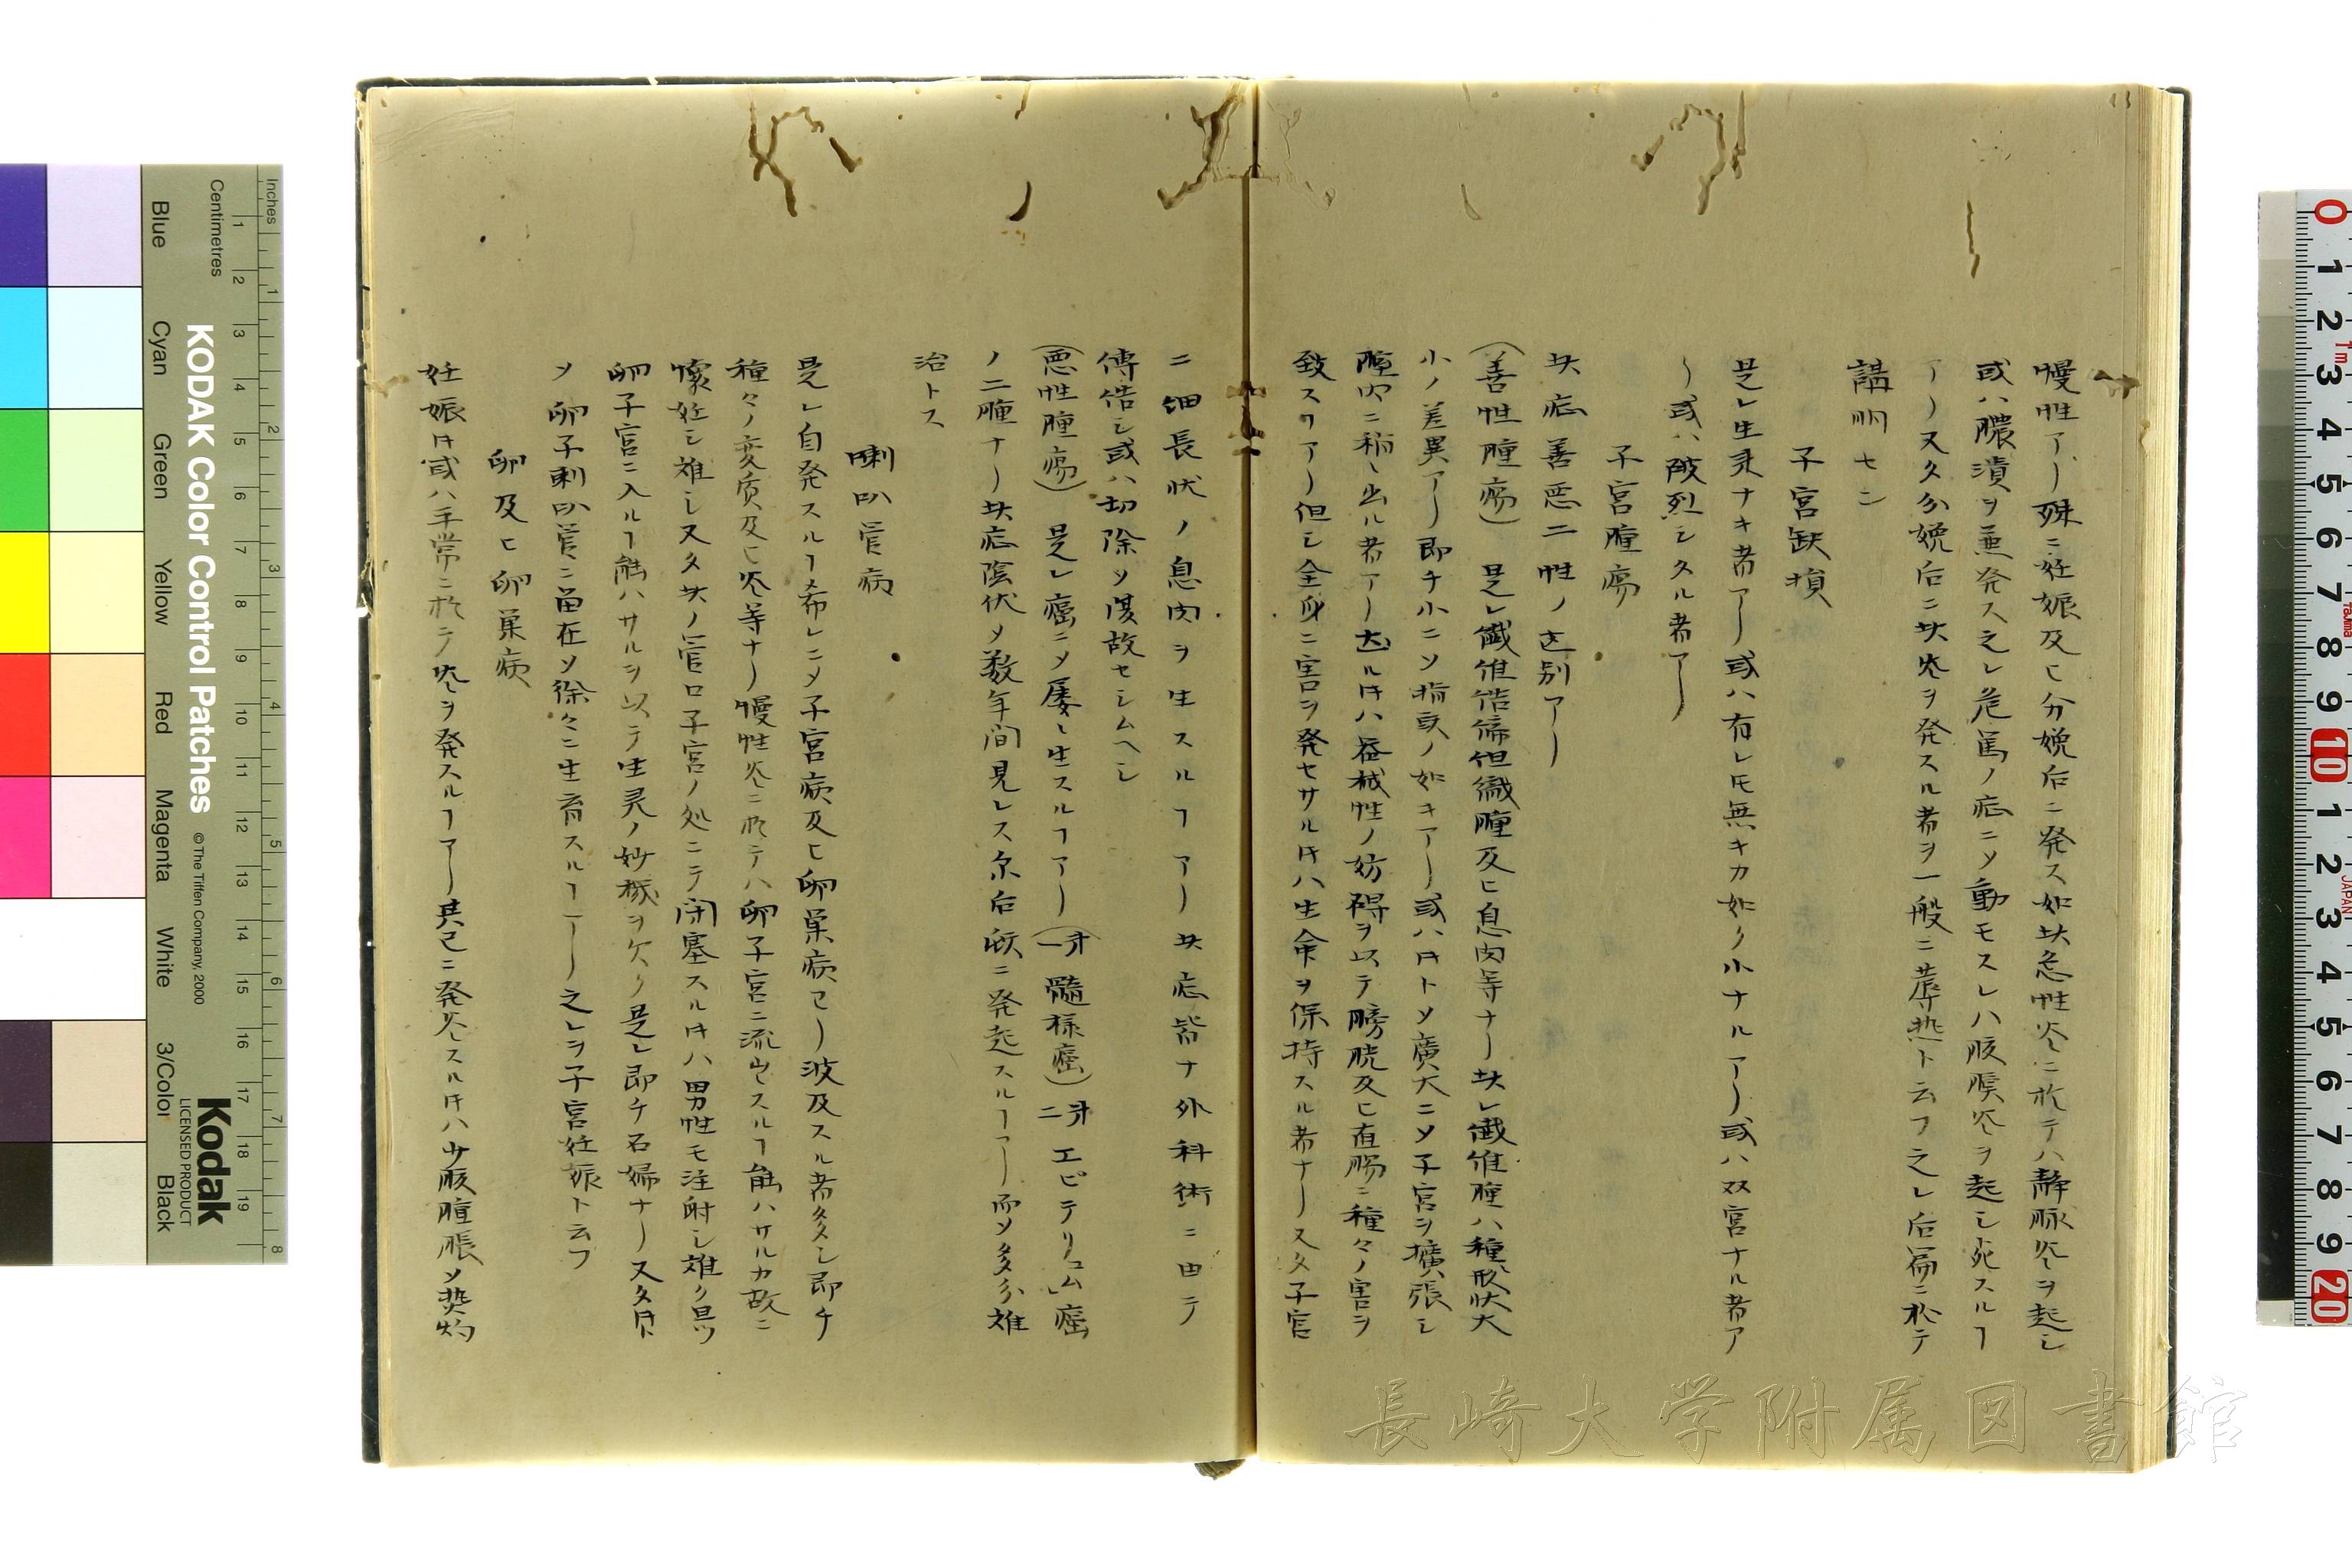 慢性アリ殊ニ妊娠及ヒ分娩后ニ発ス如此急性炎ニ於テハ静脉炎ヲ起シ
或ハ膿潰ヲ兼発ス之レ危篤ノ症ニメ動モスレハ腹膜炎ヲ起シ死スルヿ
アリ又タ分娩后ニ此炎ヲ発スル者ヲ一般ニ蓐热ト云フ之レ后篇ニ於テ
講明セン
子宮缺損
是レ生灵ナキ者アリ或ハ有レ𪜈無キカ如ク小ナルアリ或ハ双宮ナル者ア
リ或ハ破烈シタル者アリ
子宮腫瘍
此症善悪二性ノ区別アリ
(善性腫瘍) 是レ纎維偌締但織腫及ヒ息肉等ナリ此レ纎維腫ハ種形状大
小ノ差異アリ即チ小ニメ指頭ノ如キアリ或ハ日トメ廣大ニメ子宮ヲ擴張シ
膣内ニ稍々出ル者アリ如此ル片ハ器械性ノ妨碍ヲ以テ膀胱及ヒ直膓ニ種々ノ害ヲ
致スヿアリ但シ全身ニ害ヲ発セサル片ハ生命ヲ保持スル者ナリ又タ子宮
ニ細長状ノ息肉ヲ生スルヿアリ此症皆ナ外科術ニ由テ
傅偌シ或ハ切除メ復故セシムヘシ
(悪性腫瘍) 是レ癌ニメ屡々生スルヿアリ(第一髓様癌)第二エピテリュム癌
ノ二腫ナリ此症陰伏メ数年間見レス尓后頻ニ発起スルヿアリ而メ多分難
治トス
喇叭管病
是レ自発スルヿ希レニメ子宮病及ヒ卵巣病ヨリ波及スル者多シ即チ
種々ノ変质及ヒ炎等ナリ慢性炎ニ於テハ卵子宮ニ流出スルヿ能ハサルカ故ニ
懐妊シ难シ又タ此ノ管口子宮ノ処ニテ閉塞スル片ハ男性モ注射シ难ク且ツ
卵子宮ニ入ルヿ能ハサルヲ以テ生灵ノ妙機ヲ欠ク是レ即チ石婦ナリ又タ時トメ
卵子喇叭管ニ畄在メ徐々ニ生育スルヿアリ之レヲ子宮妊娠ト云フ
卵及ヒ卵巣病
妊娠片或ハ平常ニ於テ炎ヲ発スルヿアリ其已ニ発炎スル片ハ少腹腫脹メ焚灼
長崎大学附属図書館
KODAK Color Control Patches
© The Tiffen Company, 2000
Kodak
LICENSED PRODUCT
Inches
Centimetres
Blue
Cyan
Green
Yellow
Red
Magenta
White
3/Color
Black
JAPAN